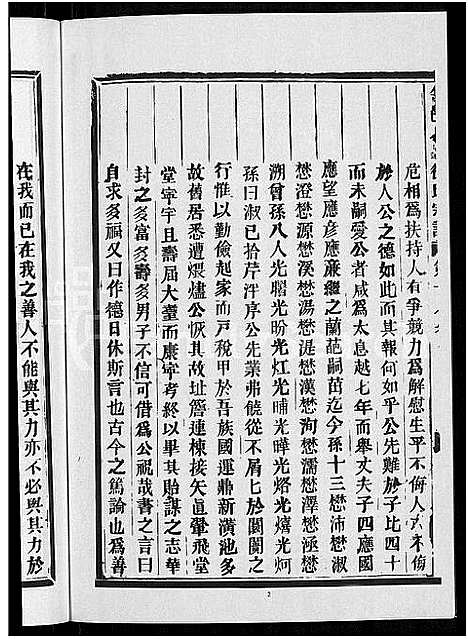 危相爲扶持人有爭競力爲解慰生平不侮人亦不侮
於人公之德如此而其報何如乎公先難於子比四十
而未嗣愛公者咸爲太息越七年而舉丈夫子四應國
應望應彥應廉繼之蘭葩嗣茁迄今孫十三懋沛懋樹
懋澄懋源懋溪懋湯懋湜懋漢懋洵懋濡懋澤懋極懋
溯曾孫八人光曙光昐光灯光晡光曄光烙光熺光炣
孫曰淑已拾芹泮序公先業弗饒從不屑七於闤闠之
行惟以勤儉起家而戶稅甲於吾族國運鼎新潢池多
故舊居悉遭煨燼公恢其故址簷連棟接矢直翬飛堂
堂寧宇且壽屆大耋而康寜考終以畢其貽謀之志華
封之多富多壽多男子不信可借爲公祝哉書之言曰
自求多福又曰作德日休斯言也古今之篤論也爲善
在我而已在我之善人不能與其力亦不必與其力於
2